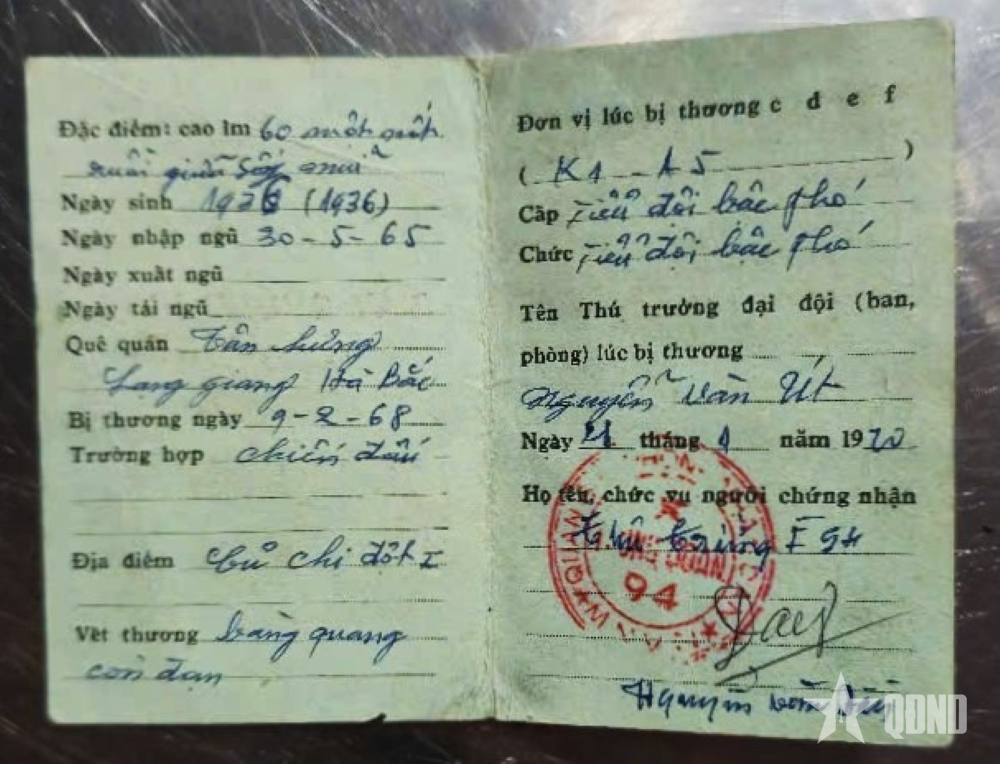 Đặc điểm: cao 1m 60 một nốt
ruồi giữa sống mũi
Ngày sinh 1936 (1936)
Ngày nhập ngũ 30-5-65
Ngày xuất ngũ
Ngày tái ngũ
Quê quán Tân hưng
Lạng giang Hà Bắc
Bị thương ngày 9-2-68
Trường hợp chiến đấu
Địa điểm Củ chi đợt I
Vết thương bàng quang
còn đạn
Đơn vị lúc bị thương c d e f
( K1 - A5 )
Cấp Tiểu đội bậc phó
Chức Tiểu đội bậc phó
Tên Thủ trưởng đại đội (ban,
phòng) lúc bị thương
Nguyễn Văn Út
Ngày tháng năm 1970
Họ tên, chức vụ người chứng nhận
Thủ trưởng
94
Nguyễn Văn
QĐND